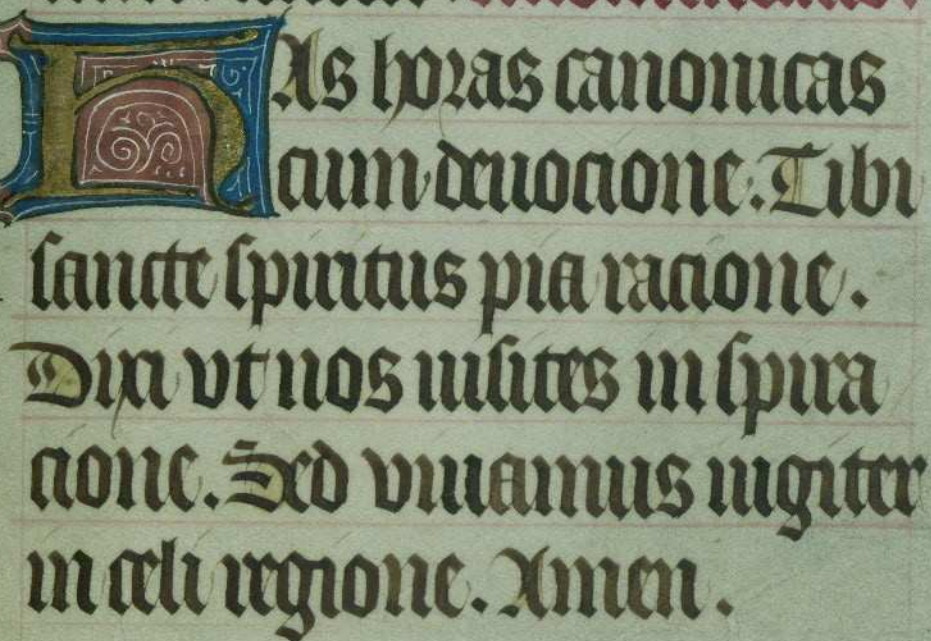 HAs horas canonicas
cum deuocione. Tibi
sancte spiritus pia racione.
Dixi vt nos uisites inspira
cione. Sed viuamus iugiter
in celi regione. Amen.